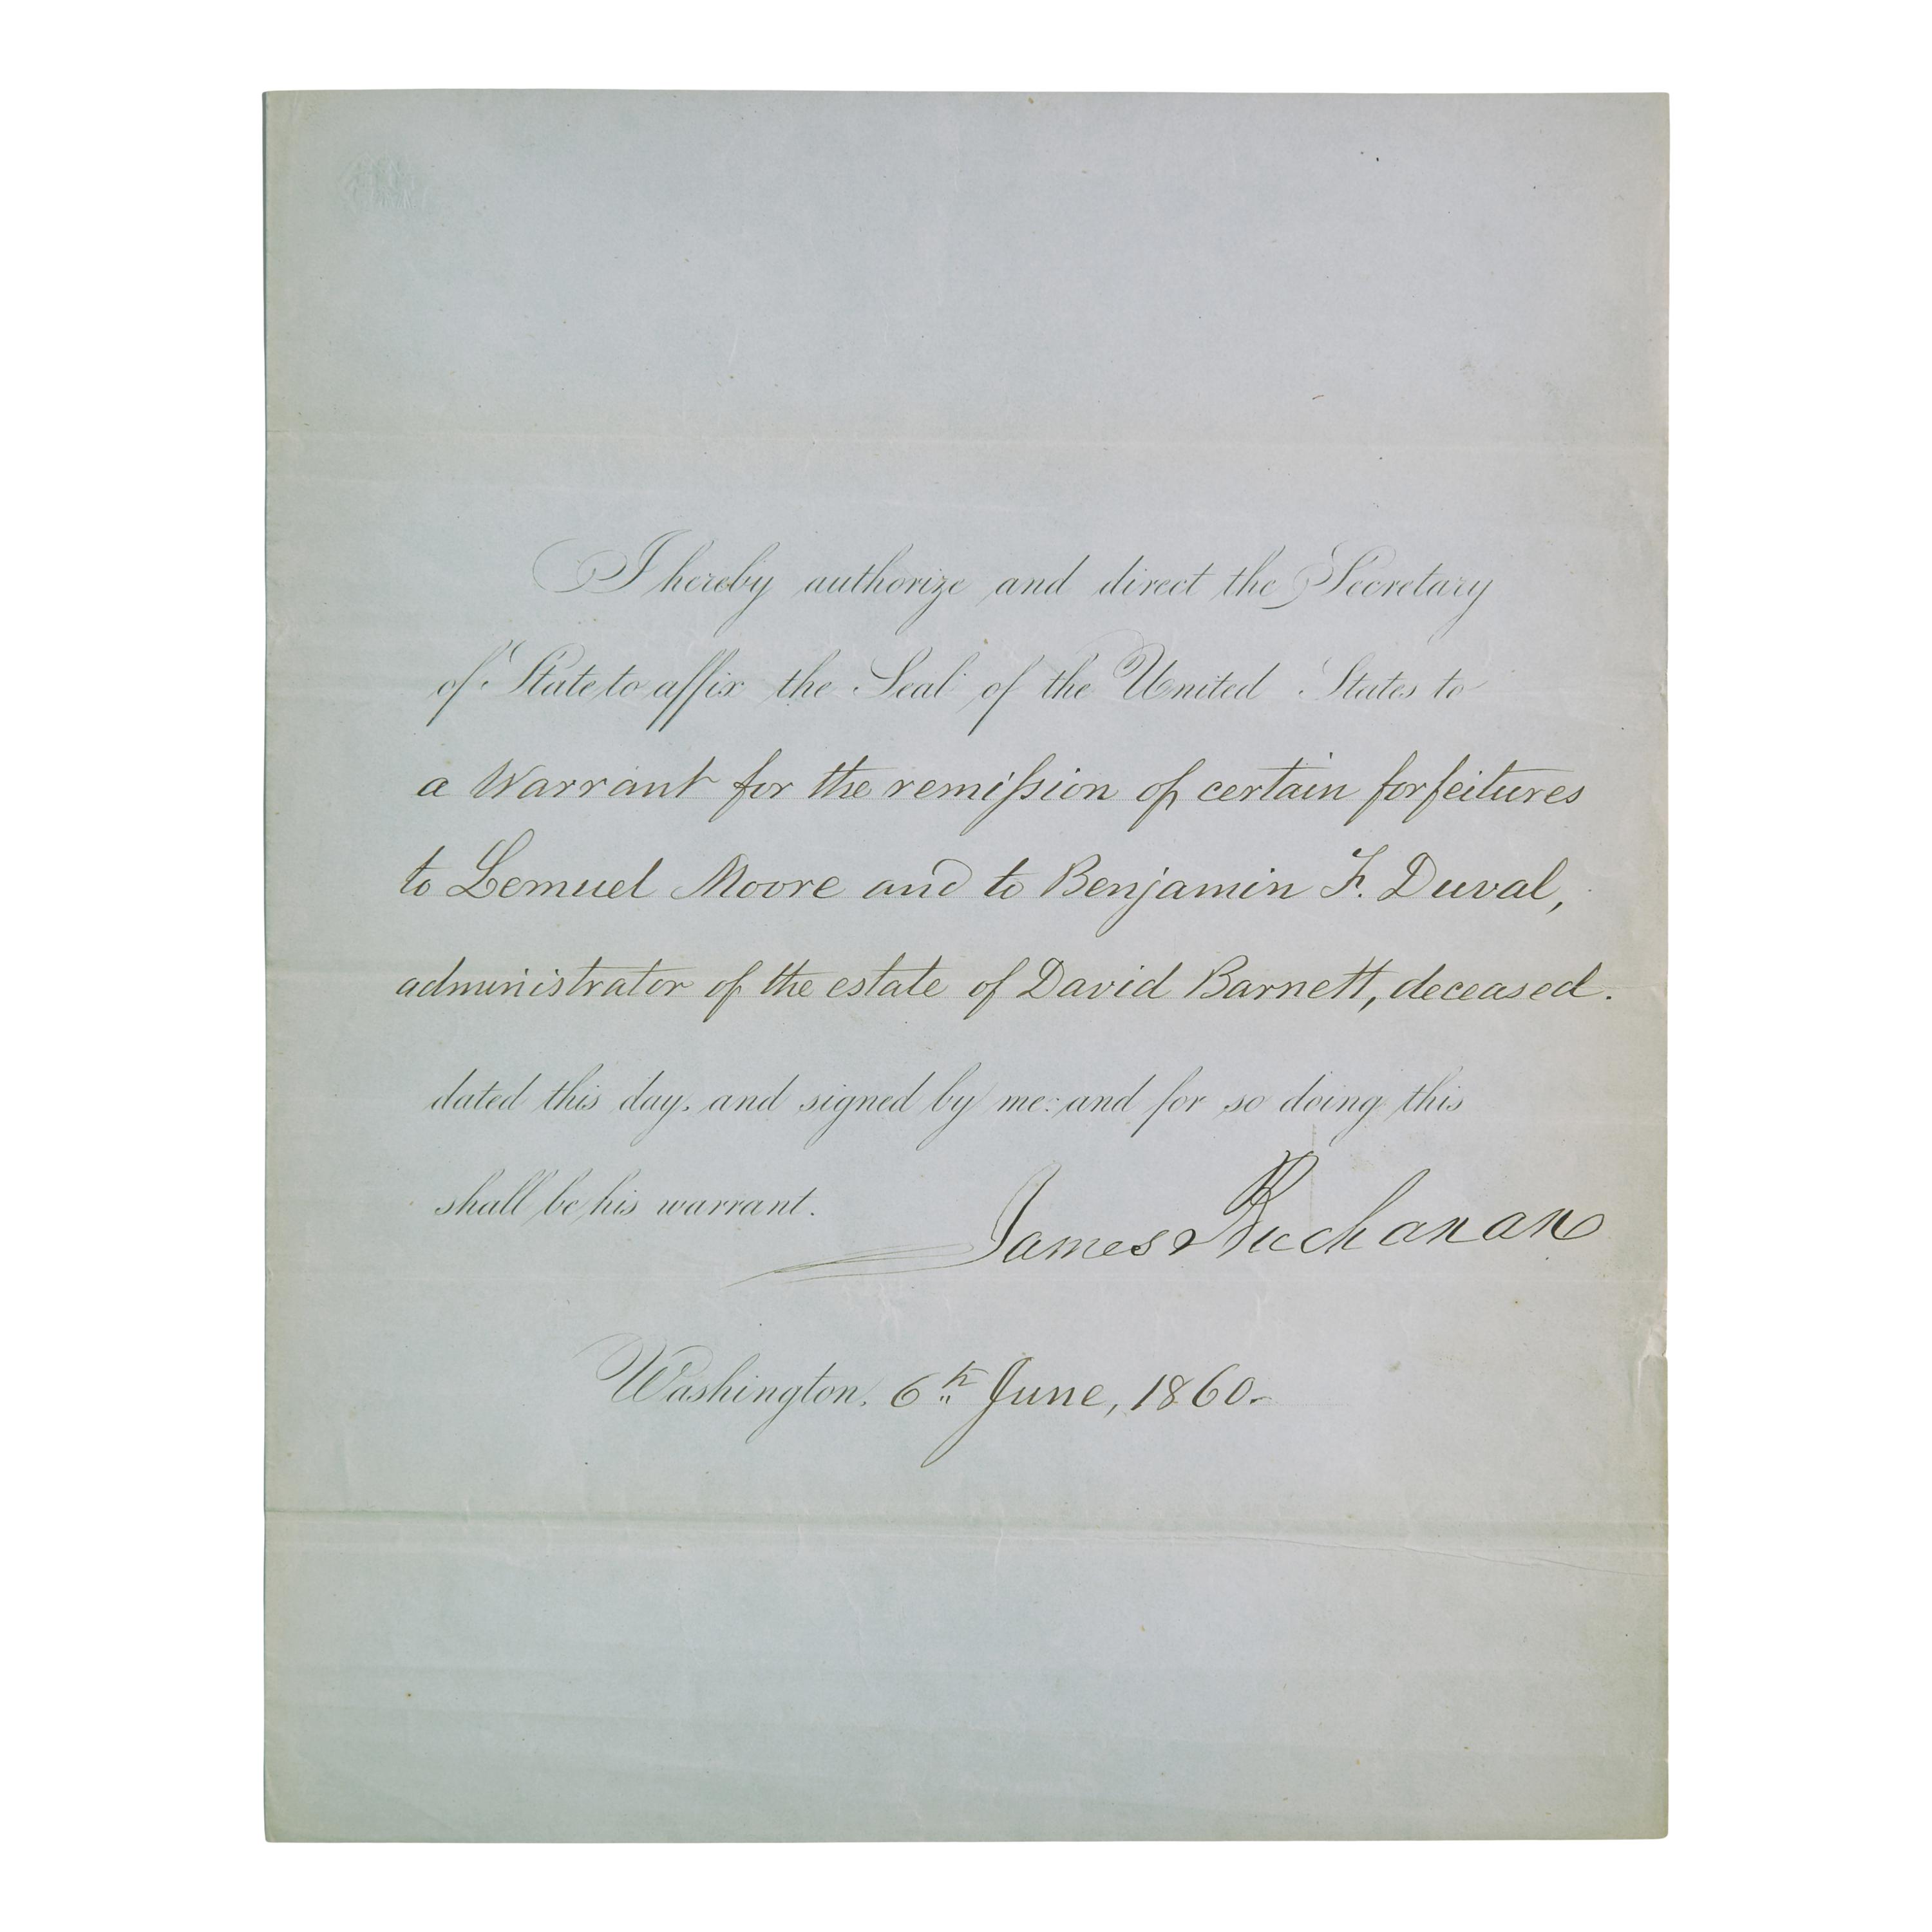 I hereby authorize and direct the Secretary
of State to affix the Seal of the United States to
a Warrant for the remiſsion of certain forfeitures
to Lemuel Moore and to Benjamin F. Duval,
administrator of the estate of David Barnett, deceased.
dated this day, and signed by me: and for so doing this
shall be his warrant.
James Buchanan
Washington, 6th June, 1860.